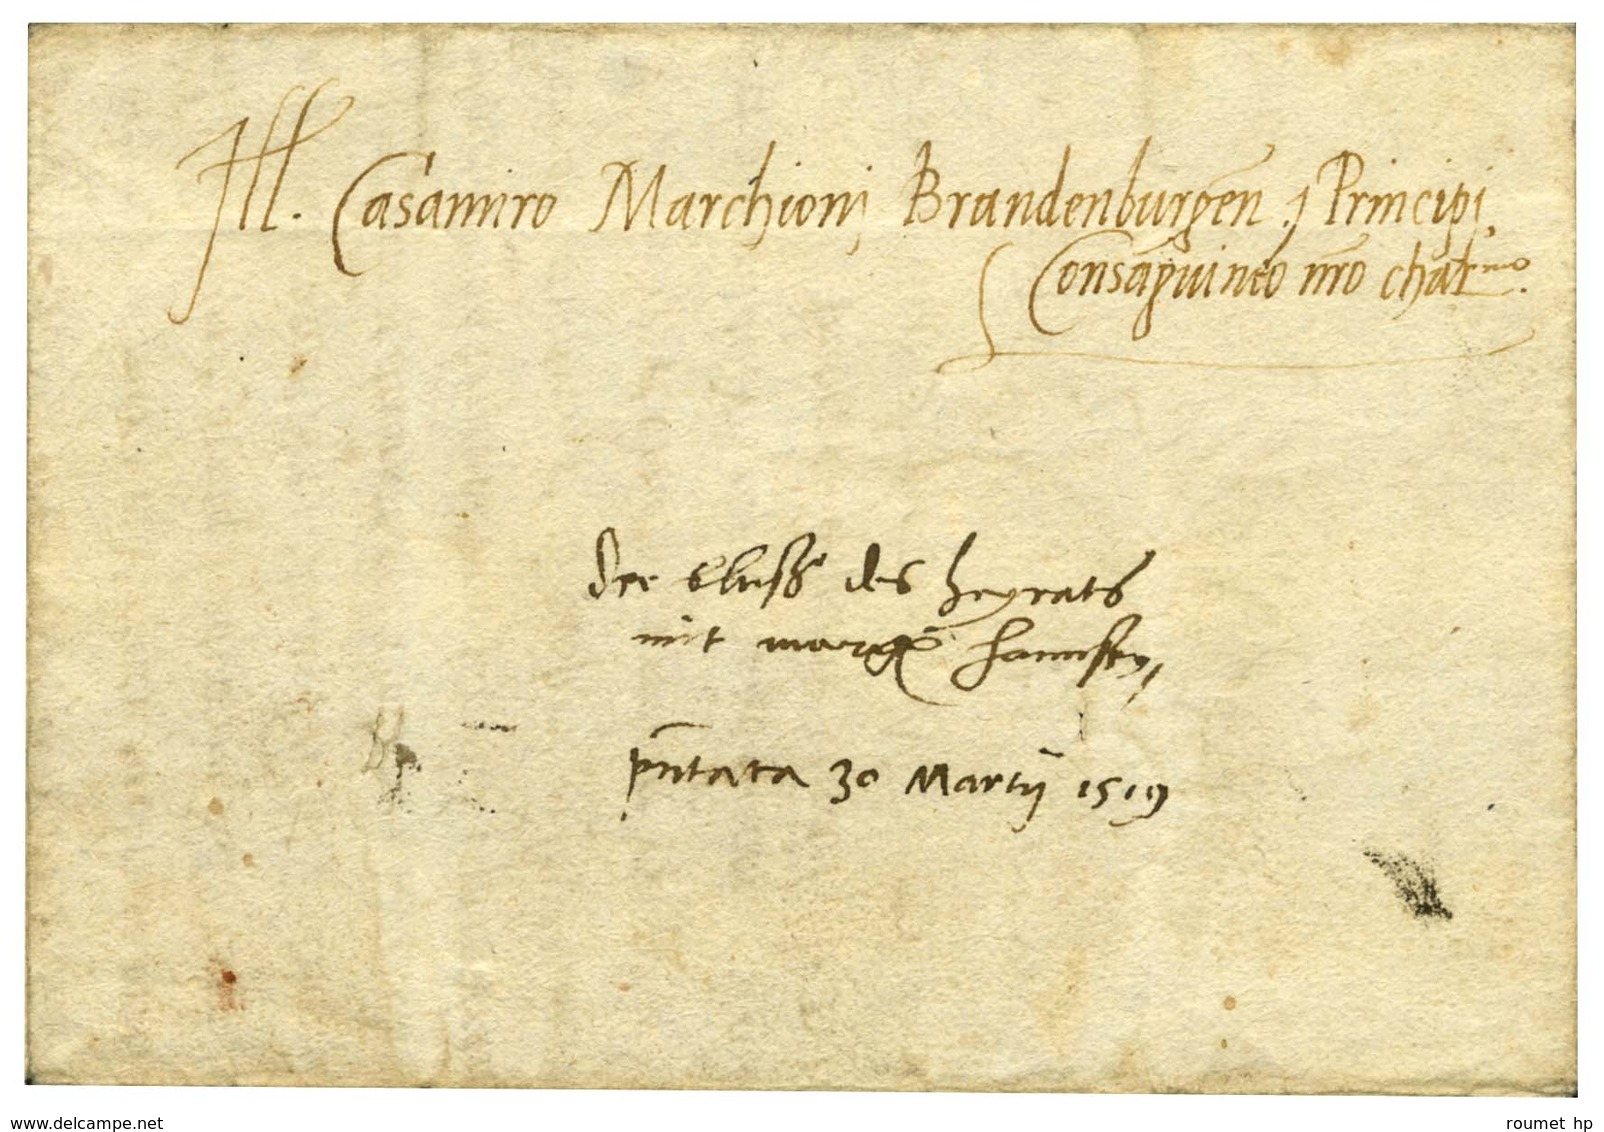 Ill. Casamiro Marchioni Brandenburgen. Principi,
Consaguineo nro charmo.
Der bluss des heyrats
mit marg hannsen,
pntata 30 Martij 1519
www.delcampe.net
roumet hp